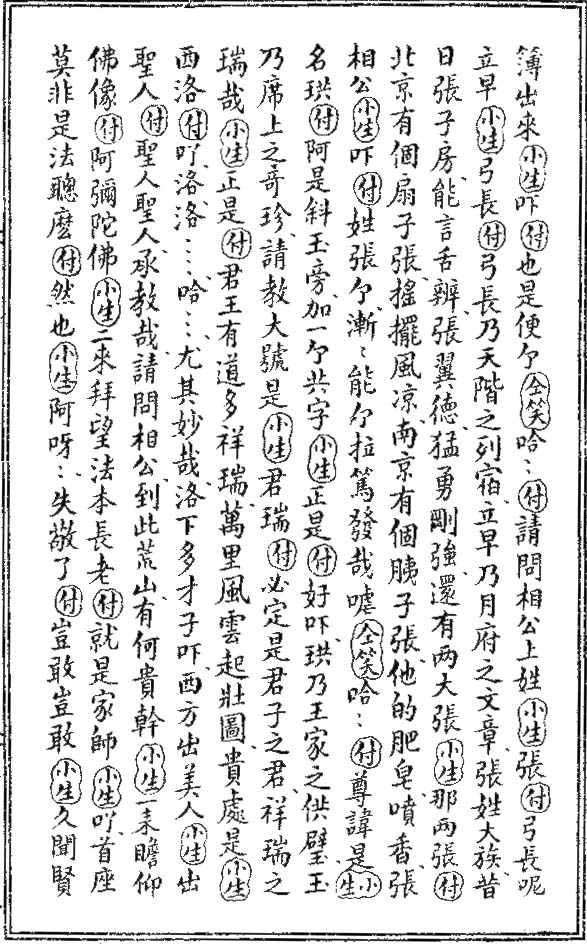 簿出來小生吓付也是便个仝笑哈⋮付請問相公上姓小生張付弓長呢
立早小生弓長付弓長乃天階之列宿立早乃月府之文章張姓大族昔
日張子房能言舌辨張翼德猛勇剛強還有两大張小生那两張付
北京有個扇子張搖擺風凉南京有個胰子張他的肥皂噴香張
相公小生吓付姓張个漸⋮能个拉篤發哉嘘仝笑哈⋮付尊諱是小生
名珙付阿是斜玉旁加一个共字小生正是付好吓珙乃王家之供璧玉
乃席上之奇珍請教大號是小生君瑞付必定是君子之君祥瑞之
瑞哉小生正是付君王有道多祥瑞萬里風雲起壯圖貴處是小生
西洛付吖洛洛⋮⋮哈⋮尤其妙哉洛下多才子吓西方出美人小生出
聖人付聖人聖人承教哉請問相公到此荒山有何貴幹小生一来瞻仰
佛像付阿彌陀佛小生二來拜望法本長老付就是家師小生吖首座
莫非是法聰麽付然也小生阿呀⋮失敬了付豈敢豈敢小生久聞賢